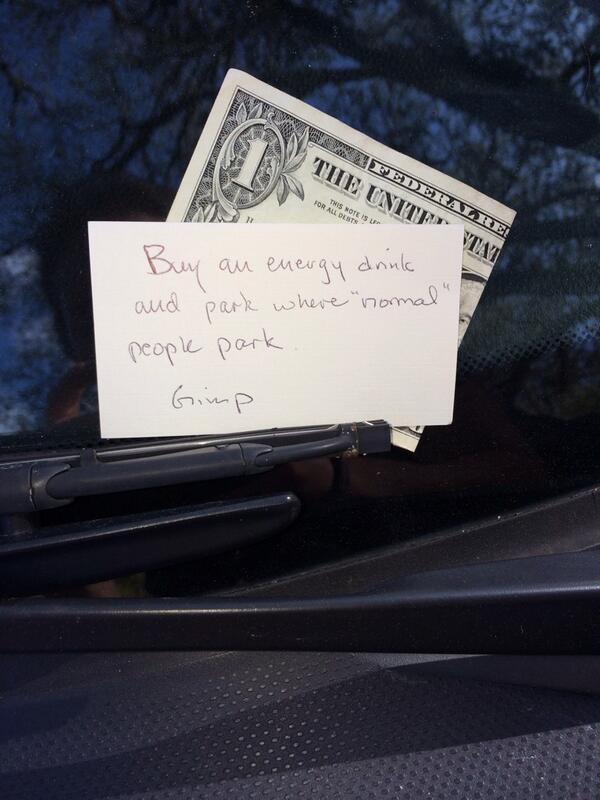 1
FEDERAL RE
THE UNITE STAT
THIS NOTE IS LE
FOR ALL DEBTS
Buy an energy drink
and park where "normal"
people park.
Gimp